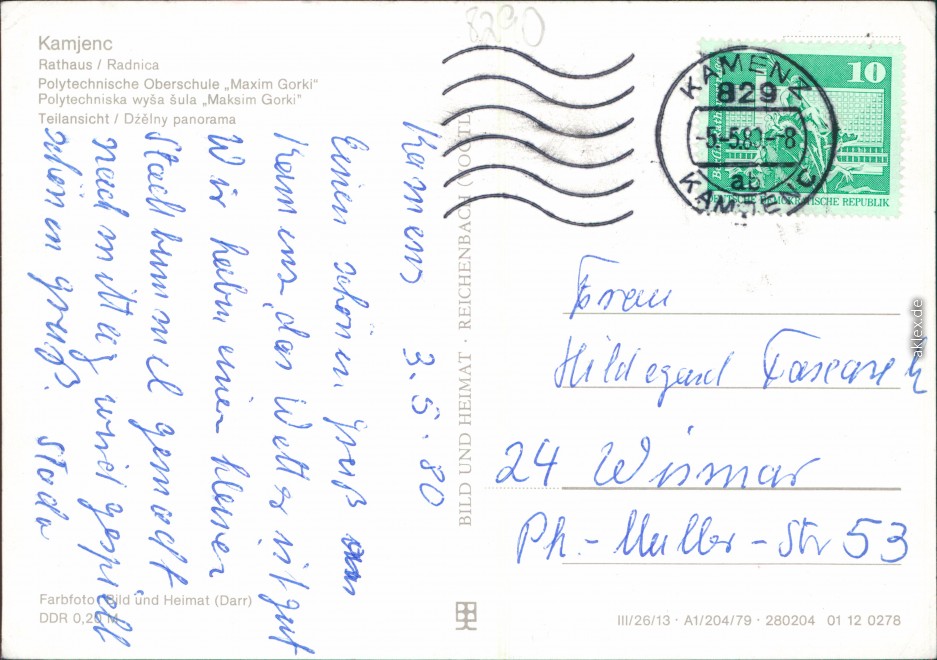 8290
Kamjenc
Rathaus / Radnica
Polytechnische Oberschule „Maxim Gorki“
Polytechniska wyša šula „Maksim Gorki“
Teilansicht / Dźělny panorama
Kamenz 3.5.80
Einen schönen Gruß aus
Kamenz, das Wetter ist gut
Wir haben einen kleinen
Stadtbummel gemacht
nachmittag wird gespielt
schönen Gruß.
Farbfoto: Bild und Heimat (Darr)
DDR 0,20 M
BILD UND HEIMAT · REICHENBACH (VOGTL
KAMENZ
829
-5.-5.80.-8
ab
KAMJENC
10
DEUTSCHE DEMOKRATISCHE REPUBLIK
Frau
Hildegard
24 Wismar
Ph.-Müller-Str 53
III/26/13 · A1/204/79 · 280204 01 12 0278
aklex.de